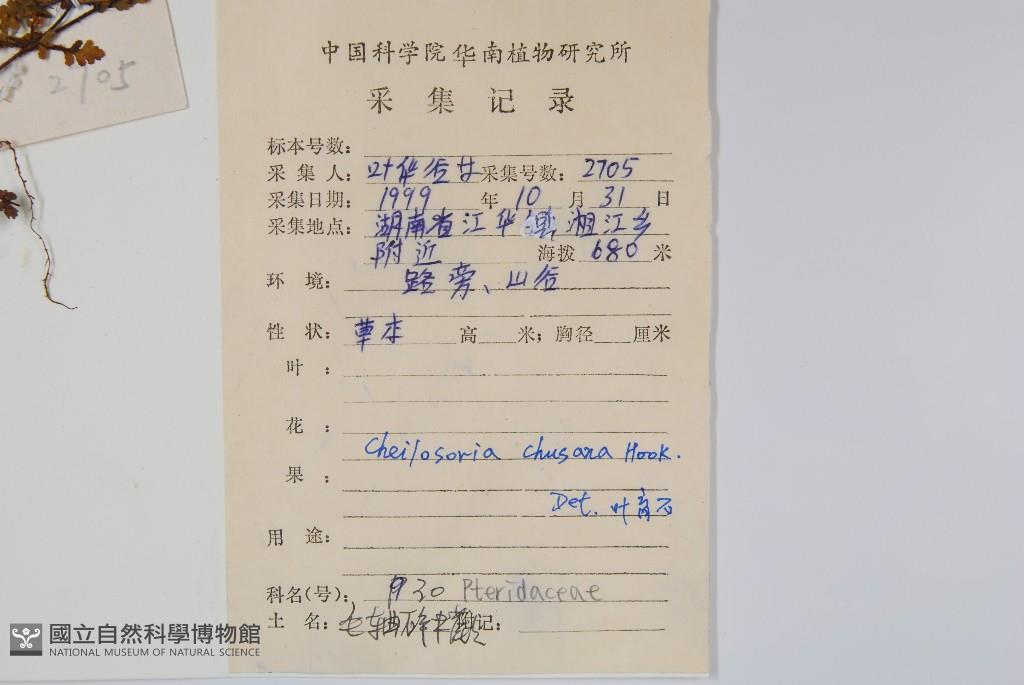 中国科学院华南植物研究所
采集记录
2705
标本号数:
采集人: 叶华谷 采集号数: 2705
采集日期: 1999 年 10 月 31 日
采集地点: 湖南省江华 湘江乡
附近 海拨 680 米
环境: 路旁、山谷
性状: 草本 高 米; 胸径 厘米
叶:
花:
Cheilosoria chusana Hook.
果:
Det. 叶育石
用途:
科名(号): P30 Pteridaceae
土名: 毛轴碎米蕨 附记:
國立自然科學博物館
NATIONAL MUSEUM OF NATURAL SCIENCE